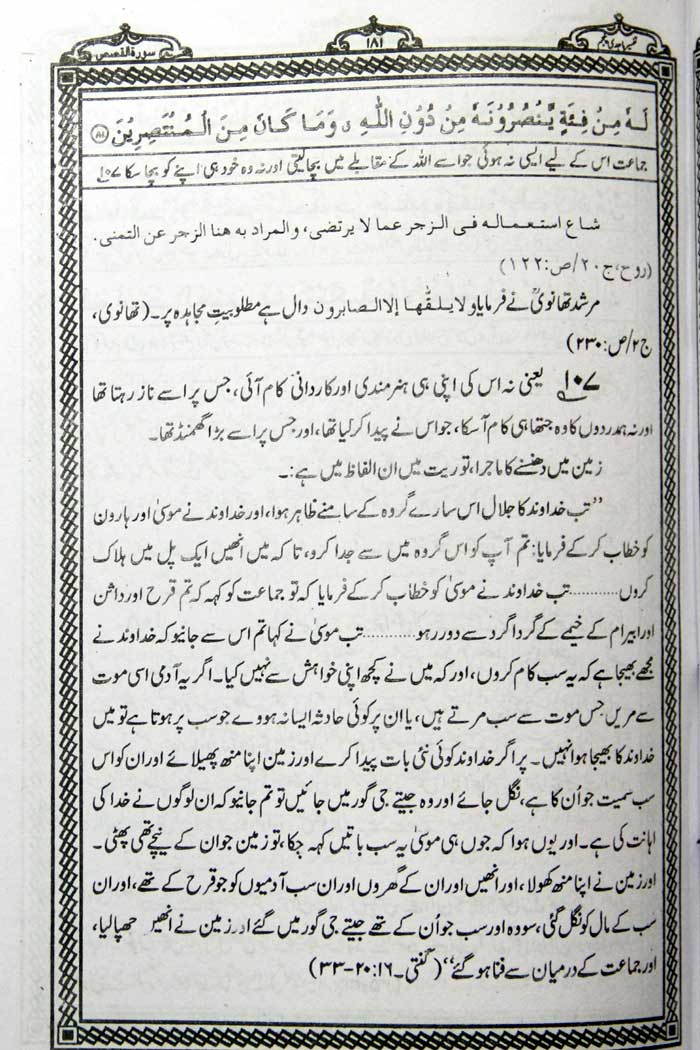 تفسیر ماجدی پنجم
۱۸۱
سورۃ القصص
لَهٗ مِنْ فِئَةٍ يَّنْصُرُوْنَهٗ مِنْ دُوْنِ اللّٰهِ ۗ وَمَا كَانَ مِنَ الْمُنْتَصِرِيْنَ ﴿۸۱﴾
جماعت اس کے لیے ایسی نہ ہوئی جو اسے اللہ کے مقابلے میں بچا لیتی اور نہ وہ خود ہی اپنے کو بچا سکا ۱۰۷
شاع استعماله فی الزجر عما لا یرتضی، والمراد به هنا الزجر عن التمنی.
(روح، ج۲۰/ص:۱۲۲)
مرشد تھانویؒ نے فرمایا ولا یلقّٰها إلا الصابرون دال ہے مطلوبیتِ مجاہدہ پر۔ (تھانوی،
ج۲/ص:۲۳۰)
۱۰۷ یعنی نہ اس کی اپنی ہی ہنرمندی اور کاردانی کام آئی، جس پر اسے ناز رہتا تھا
اور نہ ہمدردوں کا وہ جتھا ہی کام آسکا، جو اس نے پیدا کر لیا تھا، اور جس پر اسے بڑا گھمنڈ تھا۔
زمین میں دھنسنے کا ماجرا، توریت میں ان الفاظ میں ہے:۔
”تب خداوند کا جلال اس سارے گروہ کے سامنے ظاہر ہوا، اور خداوند نے موسیٰ اور ہارون
کو خطاب کر کے فرمایا: تم آپ کو اس گروہ میں سے جدا کرو، تا کہ میں انھیں ایک پل میں ہلاک
کروں............تب خداوند نے موسیٰ کو خطاب کر کے فرمایا کہ تو جماعت کو کہہ کہ تم قرح اور داثن
اور ابیرام کے خیمے کے گردا گرد سے دور رہو............تب موسیٰ نے کہا تم اس سے جانیو کہ خداوند نے
مجھے بھیجا ہے کہ یہ سب کام کروں، اور کہ میں نے کچھ اپنی خواہش سے نہیں کیا۔ اگر یہ آدمی اسی موت
سے مریں جس موت سے سب مرتے ہیں، یا ان پر کوئی حادثہ ایسا نہ ہووے جو سب پر ہوتا ہے تو میں
خداوند کا بھیجا ہوا نہیں۔ پر اگر خداوند کوئی نئی بات پیدا کرے اور زمین اپنا منھ پھیلائے اور ان کو اس
سب سمیت جو اُن کا ہے، نگل جائے اور وہ جیتے جی گور میں جائیں تو تم جانیو کہ ان لوگوں نے خدا کی
اہانت کی ہے۔ اور یوں ہوا کہ جوں ہی موسیٰ یہ سب باتیں کہہ چکا، تو زمین جو ان کے نیچے تھی پھٹی۔
اور زمین نے اپنا منھ کھولا، اور انھیں اور ان کے گھروں اور ان سب آدمیوں کو جو قرح کے تھے، اور ان
سب کے مال کو نگل گئی، سو وہ اور سب جو اُن کے تھے جیتے جی گور میں گئے اور زمین نے انھیں چھپا لیا،
اور جماعت کے درمیان سے فنا ہو گئے“ (گنتی۔ ۱۶: ۲۰-۳۳)